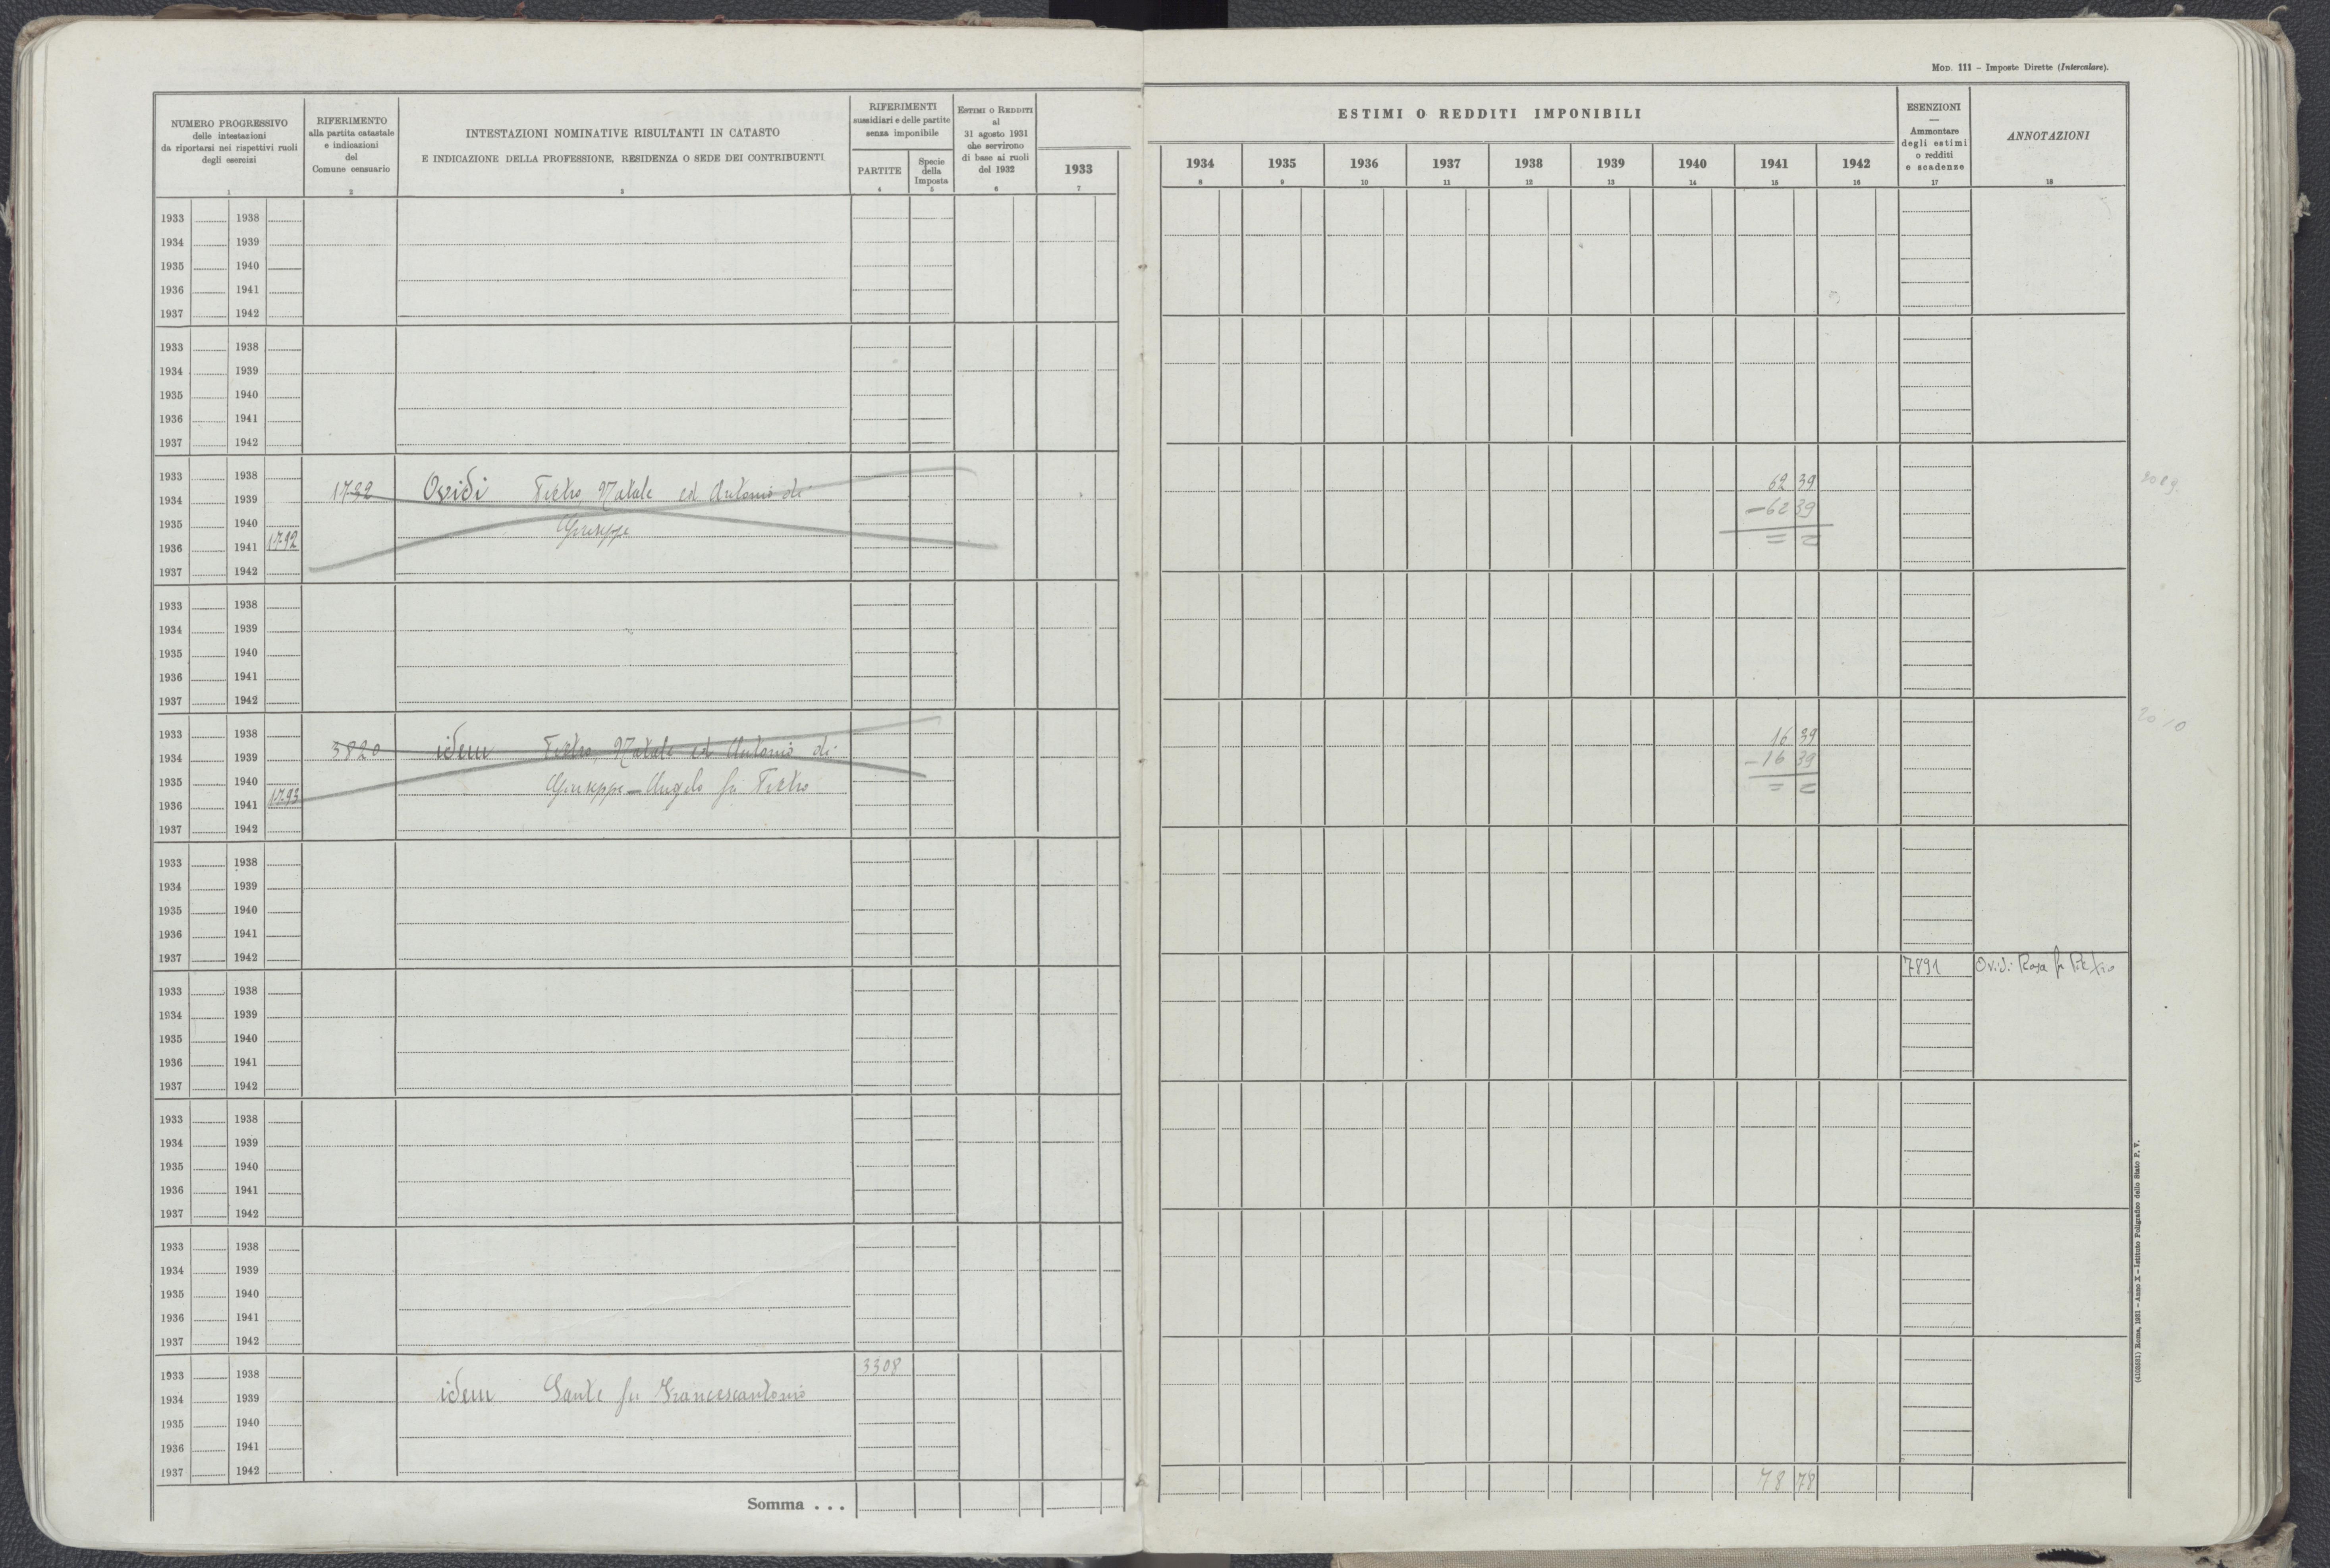 Mod. 111 – Imposte Dirette (Intercalare).
NUMERO PROGRESSIVO
delle intestazioni
da riportarsi nei rispettivi ruoli
degli esercizi
1
RIFERIMENTO
alla partita catastale
e indicazioni
del
Comune censuario
2
INTESTAZIONI NOMINATIVE RISULTANTI IN CATASTO
E INDICAZIONE DELLA PROFESSIONE, RESIDENZA O SEDE DEI CONTRIBUENTI
3
RIFERIMENTI
sussidiari e delle partite
senza imponibile
PARTITE
4
Specie
della
Imposta
5
Estimi o Redditi
al
31 agosto 1931
che servirono
di base ai ruoli
del 1932
6
1933
7
ESTIMI O REDDITI IMPONIBILI
1934 1935 1936 1937 1938 1939 1940 1941 1942
8 9 10 11 12 13 14 15 16
ESENZIONI
—
Ammontare
degli estimi
o redditi
e scadenze
17
ANNOTAZIONI
18
1933 1938
1934 1939
1935 1940
1936 1941
1937 1942
1933 1938
1934 1939
1935 1940
1936 1941
1937 1942
1933 1938
1934 1939 1792 Ovidi Pietro Natale ed Antonio di 62 39
1935 1940 Giuseppe – 62 39
1936 1941 1792 = =
1937 1942
1933 1938
1934 1939
1935 1940
1936 1941
1937 1942
1933 1938 16 39
1934 1939 3820 idem Pietro, Natale ed Antonio di – 16 39
1935 1940 Giuseppe – Angelo fu Pietro = =
1936 1941 1793
1937 1942
1933 1938
1934 1939
1935 1940
1936 1941
1937 1942
7891 Ovidi Rosa fu Pietro
1933 1938
1934 1939
1935 1940
1936 1941
1937 1942
1933 1938
1934 1939
1935 1940
1936 1941
1937 1942
1933 1938
1934 1939
1935 1940
1936 1941
1937 1942
1933 1938 3308
1934 1939 idem Sante fu Francescantonio
1935 1940
1936 1941
1937 1942
Somma . . . 78 78
(4103681) Roma, 1931 – Anno X – Istituto Poligrafico dello Stato P. V.